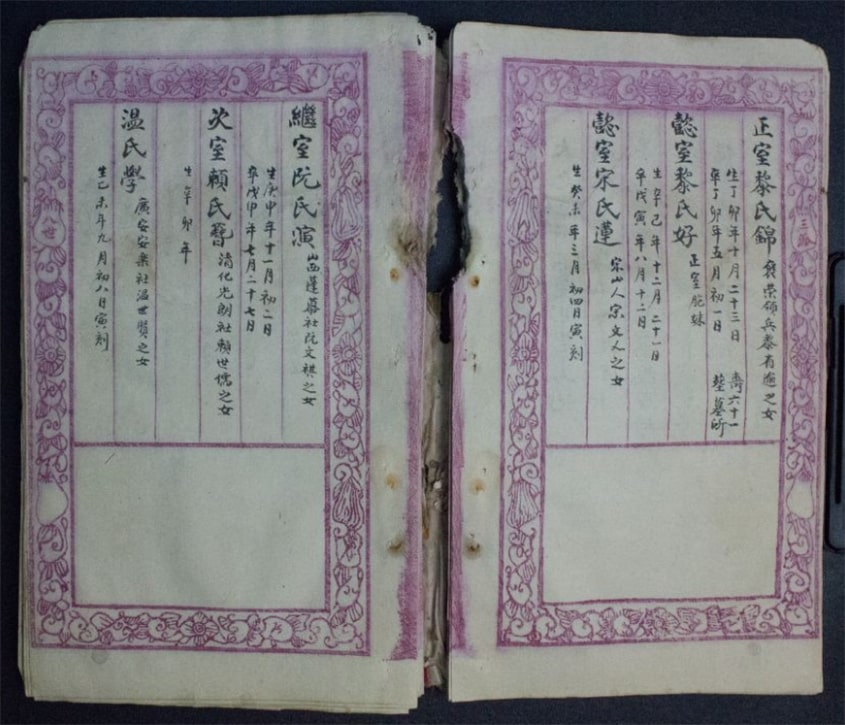 正室黎氏錦 裔榮領兵黎有週之女
生丁卯年十月二十三日 壽六十一
卒丁卯年五月初一日 塟墓所
懿室黎氏好 正室胞妹
生辛巳年十二月二十一日
卒戊寅年八月十二日
懿室宋氏蓮 宋山人宋文人之女
生癸未年三月初四日寅刻
繼室阮氏演 山西蓬暮社阮文祺之女
生庚申年十一月初二日
卒戊申年七月二十七日
次室賴氏 清化光郎社賴世 之女
生辛卯年
温氏學 廣安安業社温世賢之女
生乙未年九月初八日寅刻